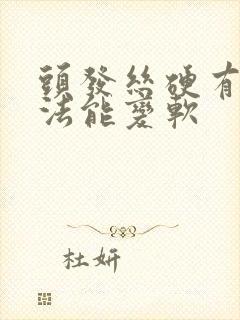 頭發絲硬有
法能變軟
杜妍